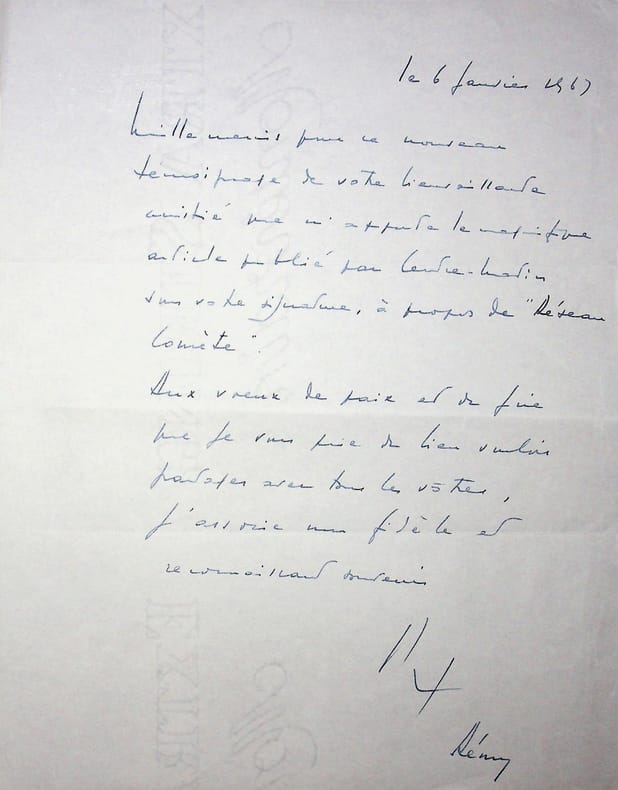 le 6 janvier 1967
Mille mercis pour ce nouveau
témoignage de votre bienveillante
amitié que m'apporte le magnifique
article publié par Centre-Matin
sous votre signature, à propos de "Réseau
Comète".
Aux voeux de paix et de joie
que je vous prie de bien vouloir
partager avec tous les vôtres,
j'associe mon fidèle et
reconnaissant souvenir
Rémy